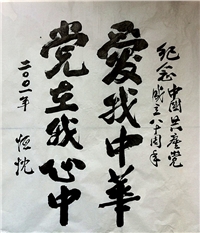 纪念中國共產黨
成立八十周年
愛我中華
党在我心中
二〇〇一年
恒忱